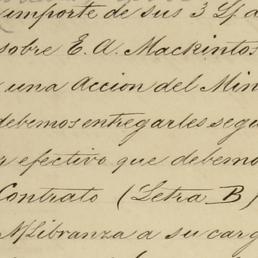 importe de sus 3 L/ a
sobre E. A. Mackintos
una Accion del Min
debemos entregarles segu
efectivo que debemo
Contrato (Letra B)
M/Libranza a su carg